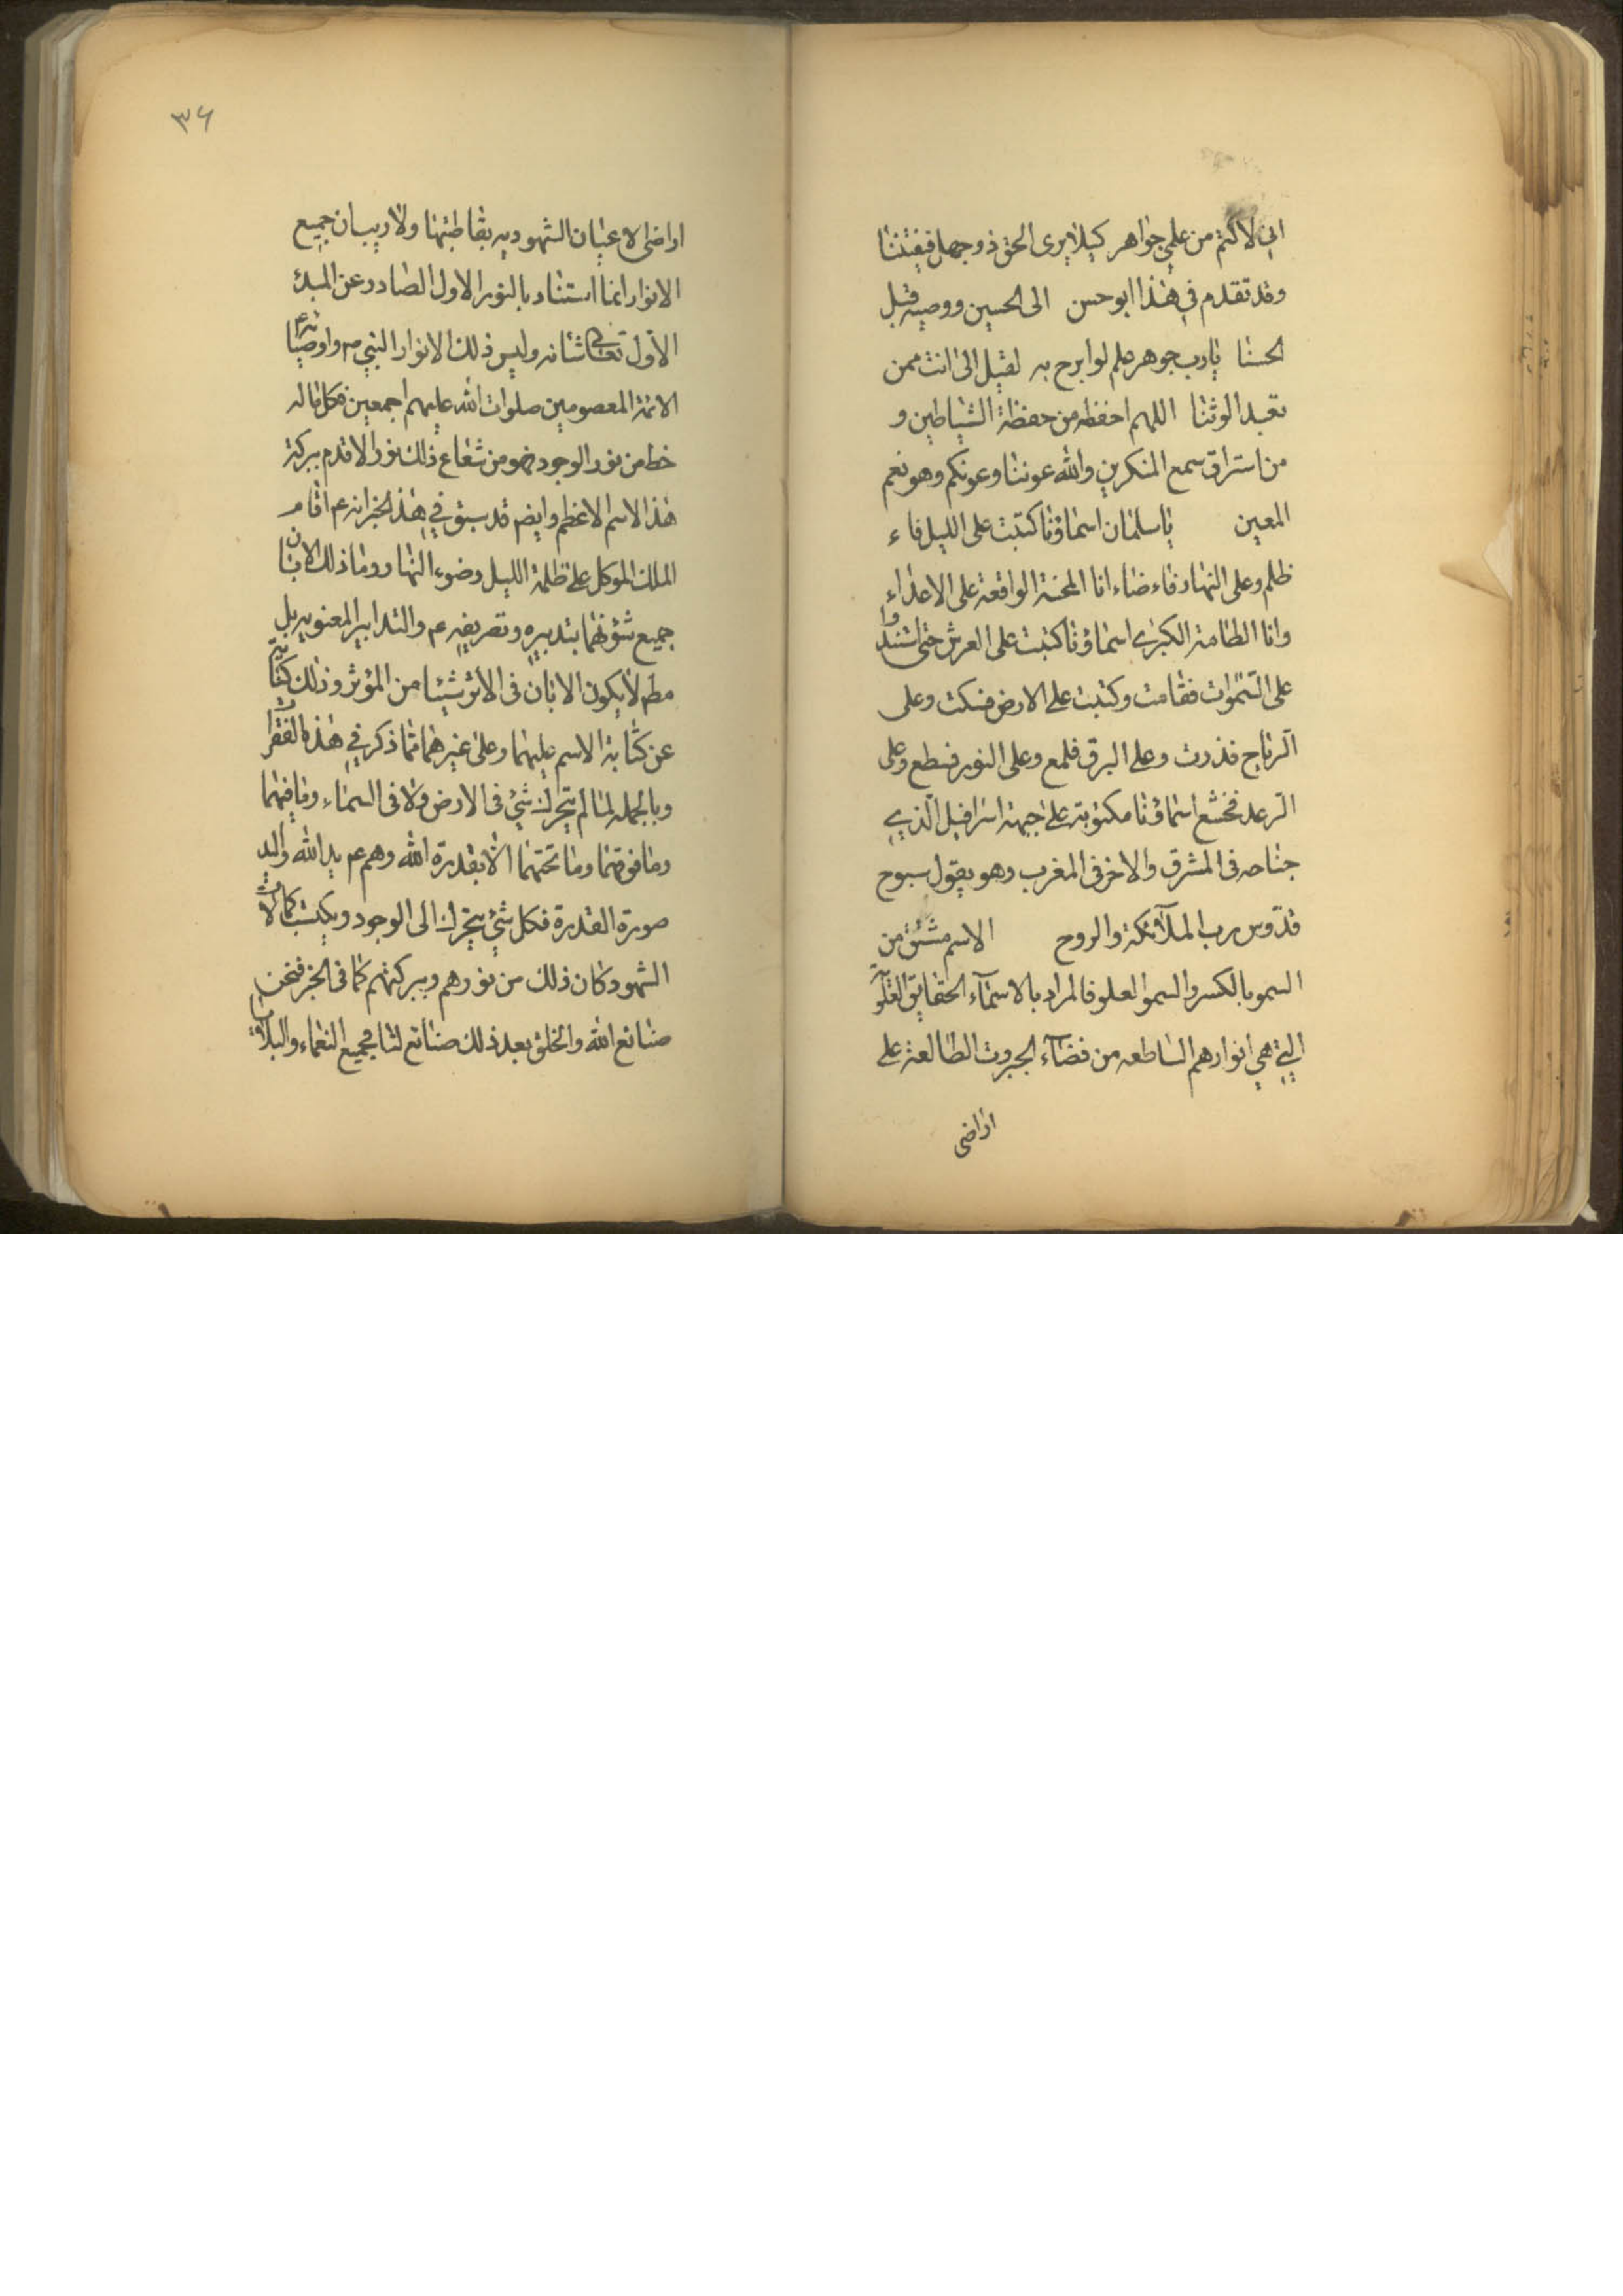 اني لاكتم من علمي جواهر كيلا يرى الحق ذو جهل فيفتننا
وقد تقدم في هذا ابو حسن الى الحسين ووصيه قبل
الحسنا يا رب جوهر علم لو ابرح به لقيل الى انت ممن
تعبد الوثنا اللهم احفظه من حفظة الشياطين و
من استراق سمع المنكرين والله عوننا وعونكم وهو نعم
المعين يا سلمان اسماؤنا كتبت على الليل فاء
ظلم وعلى النهار فاء ضاء انا المحنة الواقعة على الاعداء
وانا الطامة الكبرى اسماؤنا كتبت على العرش حتى استند وا
على السموات فقامت وكتبت على الارض فسكت وعلى
الرياح فذرت وعلى البرق فلمع وعلى النور فسطع وعلى
الرعد فخشع اسماؤنا مكتوبة على جبهة اسرافيل الذي
جناحه في المشرق والاخر في المغرب وهو يقول سبوح
قدّوس رب الملآئكة والروح الاسم مشتق من
السمو بالكسر والسمو العلو فالمراد بالاسمآء الحقايق
التي هي انوارهم الساطعه من فضآء الجبروت الطالعة على
اراضى
٣٦
اراضى الاعيان الشهوديه بقاطبتها ولا ريب ان جميع
الانوار انما استنار بالنور الاول الصادر عن المبدئ
الاول تعالى شانه وليس ذلك الا نوار النبي ص واوصيائه ع
الائمة المعصومين صلوات الله عليهم اجمعين فكل ما له
خط من نور الوجود فهو من شعاع ذلك نور الاقدم ببركة
هذا الاسم الاعظم وايضم قد سبق في هذ الخبر انه ع اقام
الملك الموكل على ظلمة الليل وضوء النهار وما ذلك الا بان
جميع شؤنهما بتدبيره وتصريفه ع والتدابير المعنويه بل
مطم لا يكون الا بان في الاثر شيئا من المؤثر وذلك كناية
عن كتابة الاسم عليهما وعلى غيرهما مما ذكر في هذه الفقرات
وبالجمله لما لم يتحرك شئ في الارض ولا في السماء وما فيهما
وما فوقهما وما تحتهما الا بقدرة الله وهم ع يد الله واليد
صورة القدرة فكل شئ يتحرك الى الوجود ويكتسب كمالات
الشهود كان ذلك من نورهم وببركتهم كما في الخبر فنحن
صنائع الله والخلق بعد ذلك صنائع لنا فجميع النعماء والبلاء